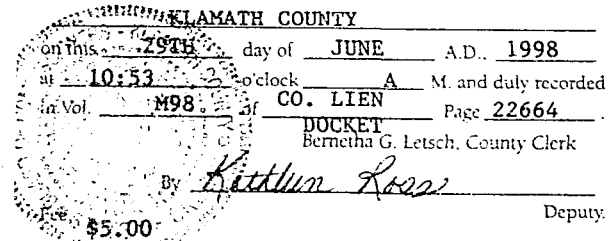 KLAMATH COUNTY
on this 29TH day of JUNE A.D., 1998
at 10:53 o'clock A M. and duly recorded
in Vol. M98 of CO. LIEN DOCKET Page 22664
Bernetha G. Letsch, County Clerk
By Kathlun Ross
Deputy.
Fee, $5.00